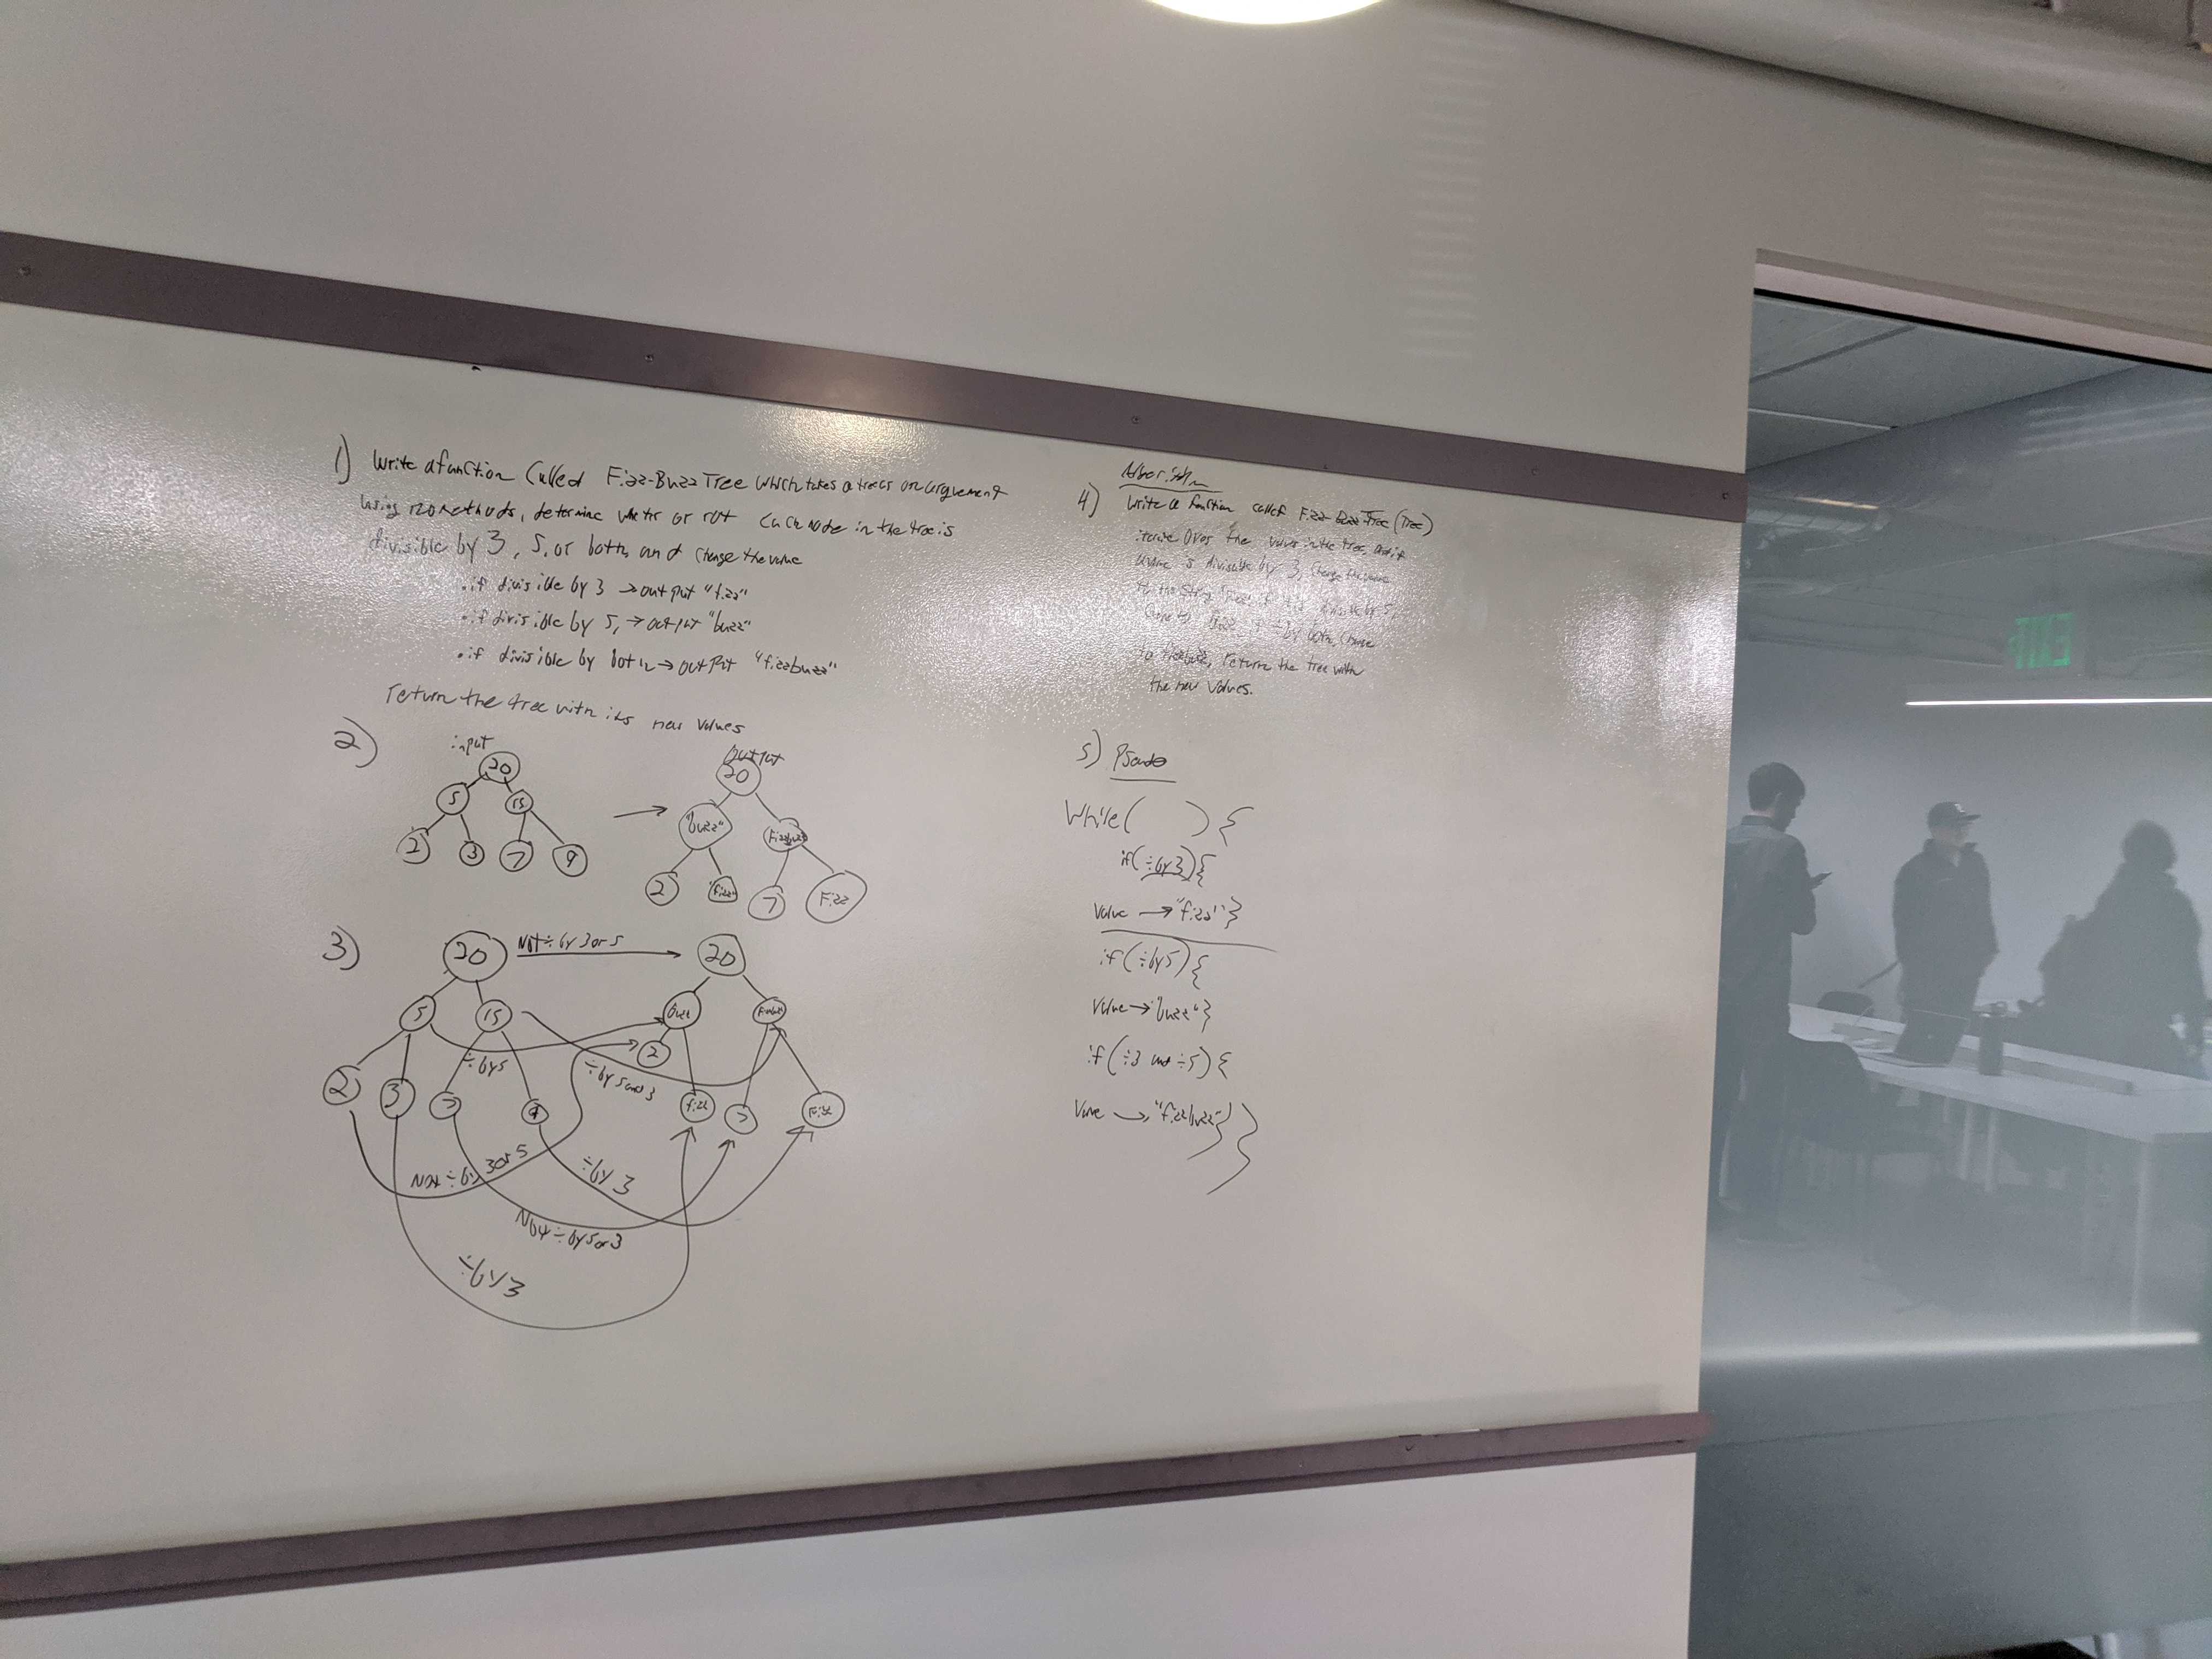 1) Write a function Called Fizz-Buzz Tree which takes a tree as an arguement
Using no methods, determine whether or not each node in the tree is
divisible by 3, 5, or both and change the value
• if divisible by 3 → output "fizz"
• if divisible by 5, → output "buzz"
• if divisible by both → output "fizzbuzz"
return the tree with its new values
2)
input
20
5 15
2 3 7 9
→
output
20
"buzz" Fizzbuzz
2 "fizz" 7 Fizz
3)
20 Not ÷ by 3 or 5 20
5 15 Buzz Fizzbuzz
2
÷ by 5 ÷ by 5 and 3
2 3 7 9 fizz 7 Fizz
Not ÷ by 3 or 5 ÷ by 3
Not ÷ by 5 or 3
÷ by 3
Algorithm
4) Write a function called Fizz-Buzz Tree (Tree)
iterate over the values in the tree, and if
value is divisible by 3, change the value
to the string divisible by 5,
by both, change
to fizzbuzz, return the tree with
the new values.
5) Pseudo
While( ) {
if(÷ by 3) {
Value → "fizz" }
if(÷ by 5) {
Value → "buzz" }
if(÷ 3 and ÷ 5) {
Value → "fizzbuzz" }
}
EXIT